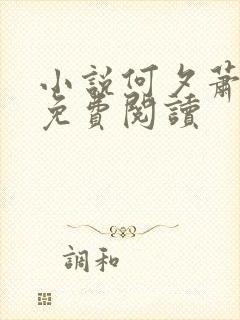 小說何夕蕭
免費閱讀
調和